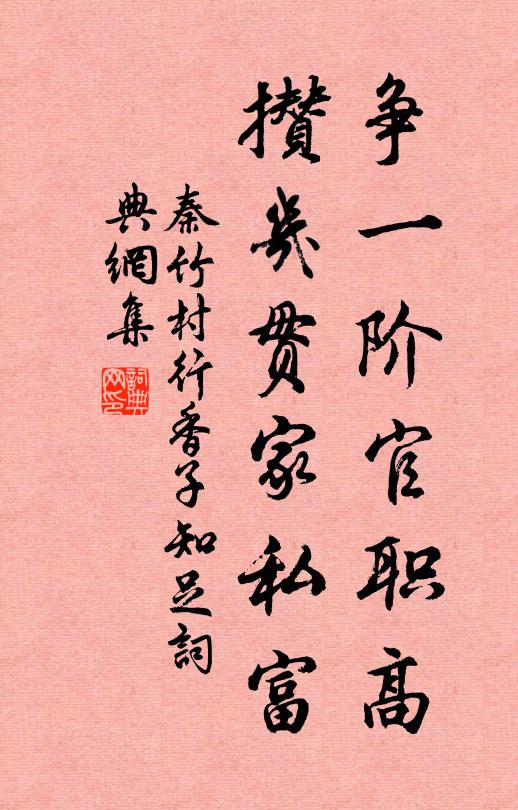 争一阶官职高
攒几贯家私富
秦竹村行香子知足詞
典網集
詞典网印